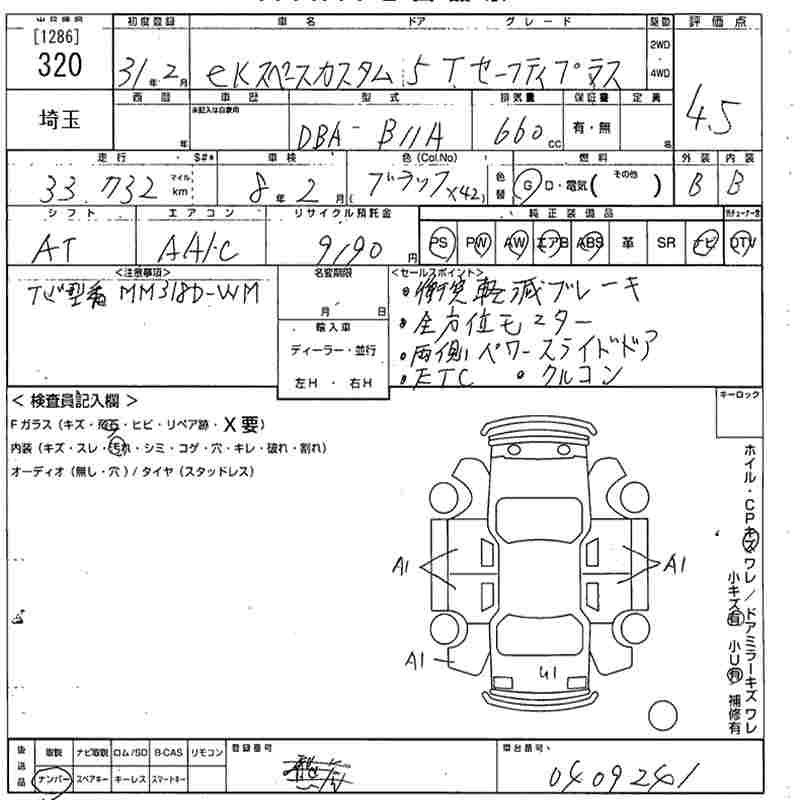 [1286]
320
初度登録 車名 ドア グレード 駆動 評価点
31年2月 eKスペースカスタム 5 T.セーフティプラス 2WD・4WD 4.5
埼玉
西暦 車歴 型式 排気量 保証書 定員
未記入は自家用
年 DBA-B11A 660cc 有・無 名
走行 S#* 車検 色(Col.No) 燃料 外装 内装
33.732 マイル km 8年2月 ブラック(X42) 色替 G D・電気( その他 ) B B
シフト エアコン リサイクル預託金 純正装備品
AT AA/C 9190円 PS PW AW エアB ABS 革 SR ナビ DTV
<注意事項> 名変期限 <セールスポイント>
ナビ型番 MM318D-WM
月 日
輸入車
ディーラー・並行
左H・右H
・衝突軽減ブレーキ
・全方位モニター
・両側パワースライドドア
・ETC ・クルコン
<検査員記入欄>
キーロック
Fガラス(キズ・飛石・ヒビ・リペア跡・X要)
内装(キズ・スレ・汚れ・シミ・コゲ・穴・キレ・破れ・割れ)
オーディオ(無し・穴)/タイヤ(スタッドレス)
A1
A1
A1
U1
ホイル・CPキズワレ/ドアミラーキズワレ
小キズ有 小U有 補修有
後送品 取説 ナビ取説 ロム/SD B-CAS リモコン
ナンバー スペアキー キーレス スマートキー
登録番号
車台番号、
0409241